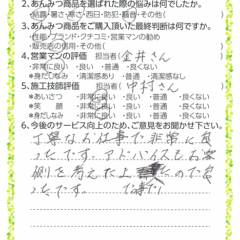 2.あんみつ商品を選ばれた際の悩みは何でしたか。
・結露・暑さ・寒さ・西日・防犯・騒音・その他(　　)
3.あんみつ商品をご購入頂いた最終判断は何ですか。
・性能・ブランド・クチコミ・営業マンの勧め
・販売店の信用・その他(　　)
4.営業マンの評価　担当者(金井さん)
・非常に良い　・良い　・普通　・良くない
*身だしなみ　・清潔感あり　・普通　・清潔感なし
5.施工技師評価　担当者(中村さん)
*あいさつ　・非常に良い　・良い　・普通　・良くない
*笑　顔　・非常に良い　・良い　・普通　・良くない
*身だしなみ　・非常に良い　・良い　・普通　・良くない
6.今後のサービス向上のため、ご意見をお聞かせ下さい。
丁寧なお仕事で非常に良
かったです。アドバイスもお客
側を考えた上 ので良
かったです。